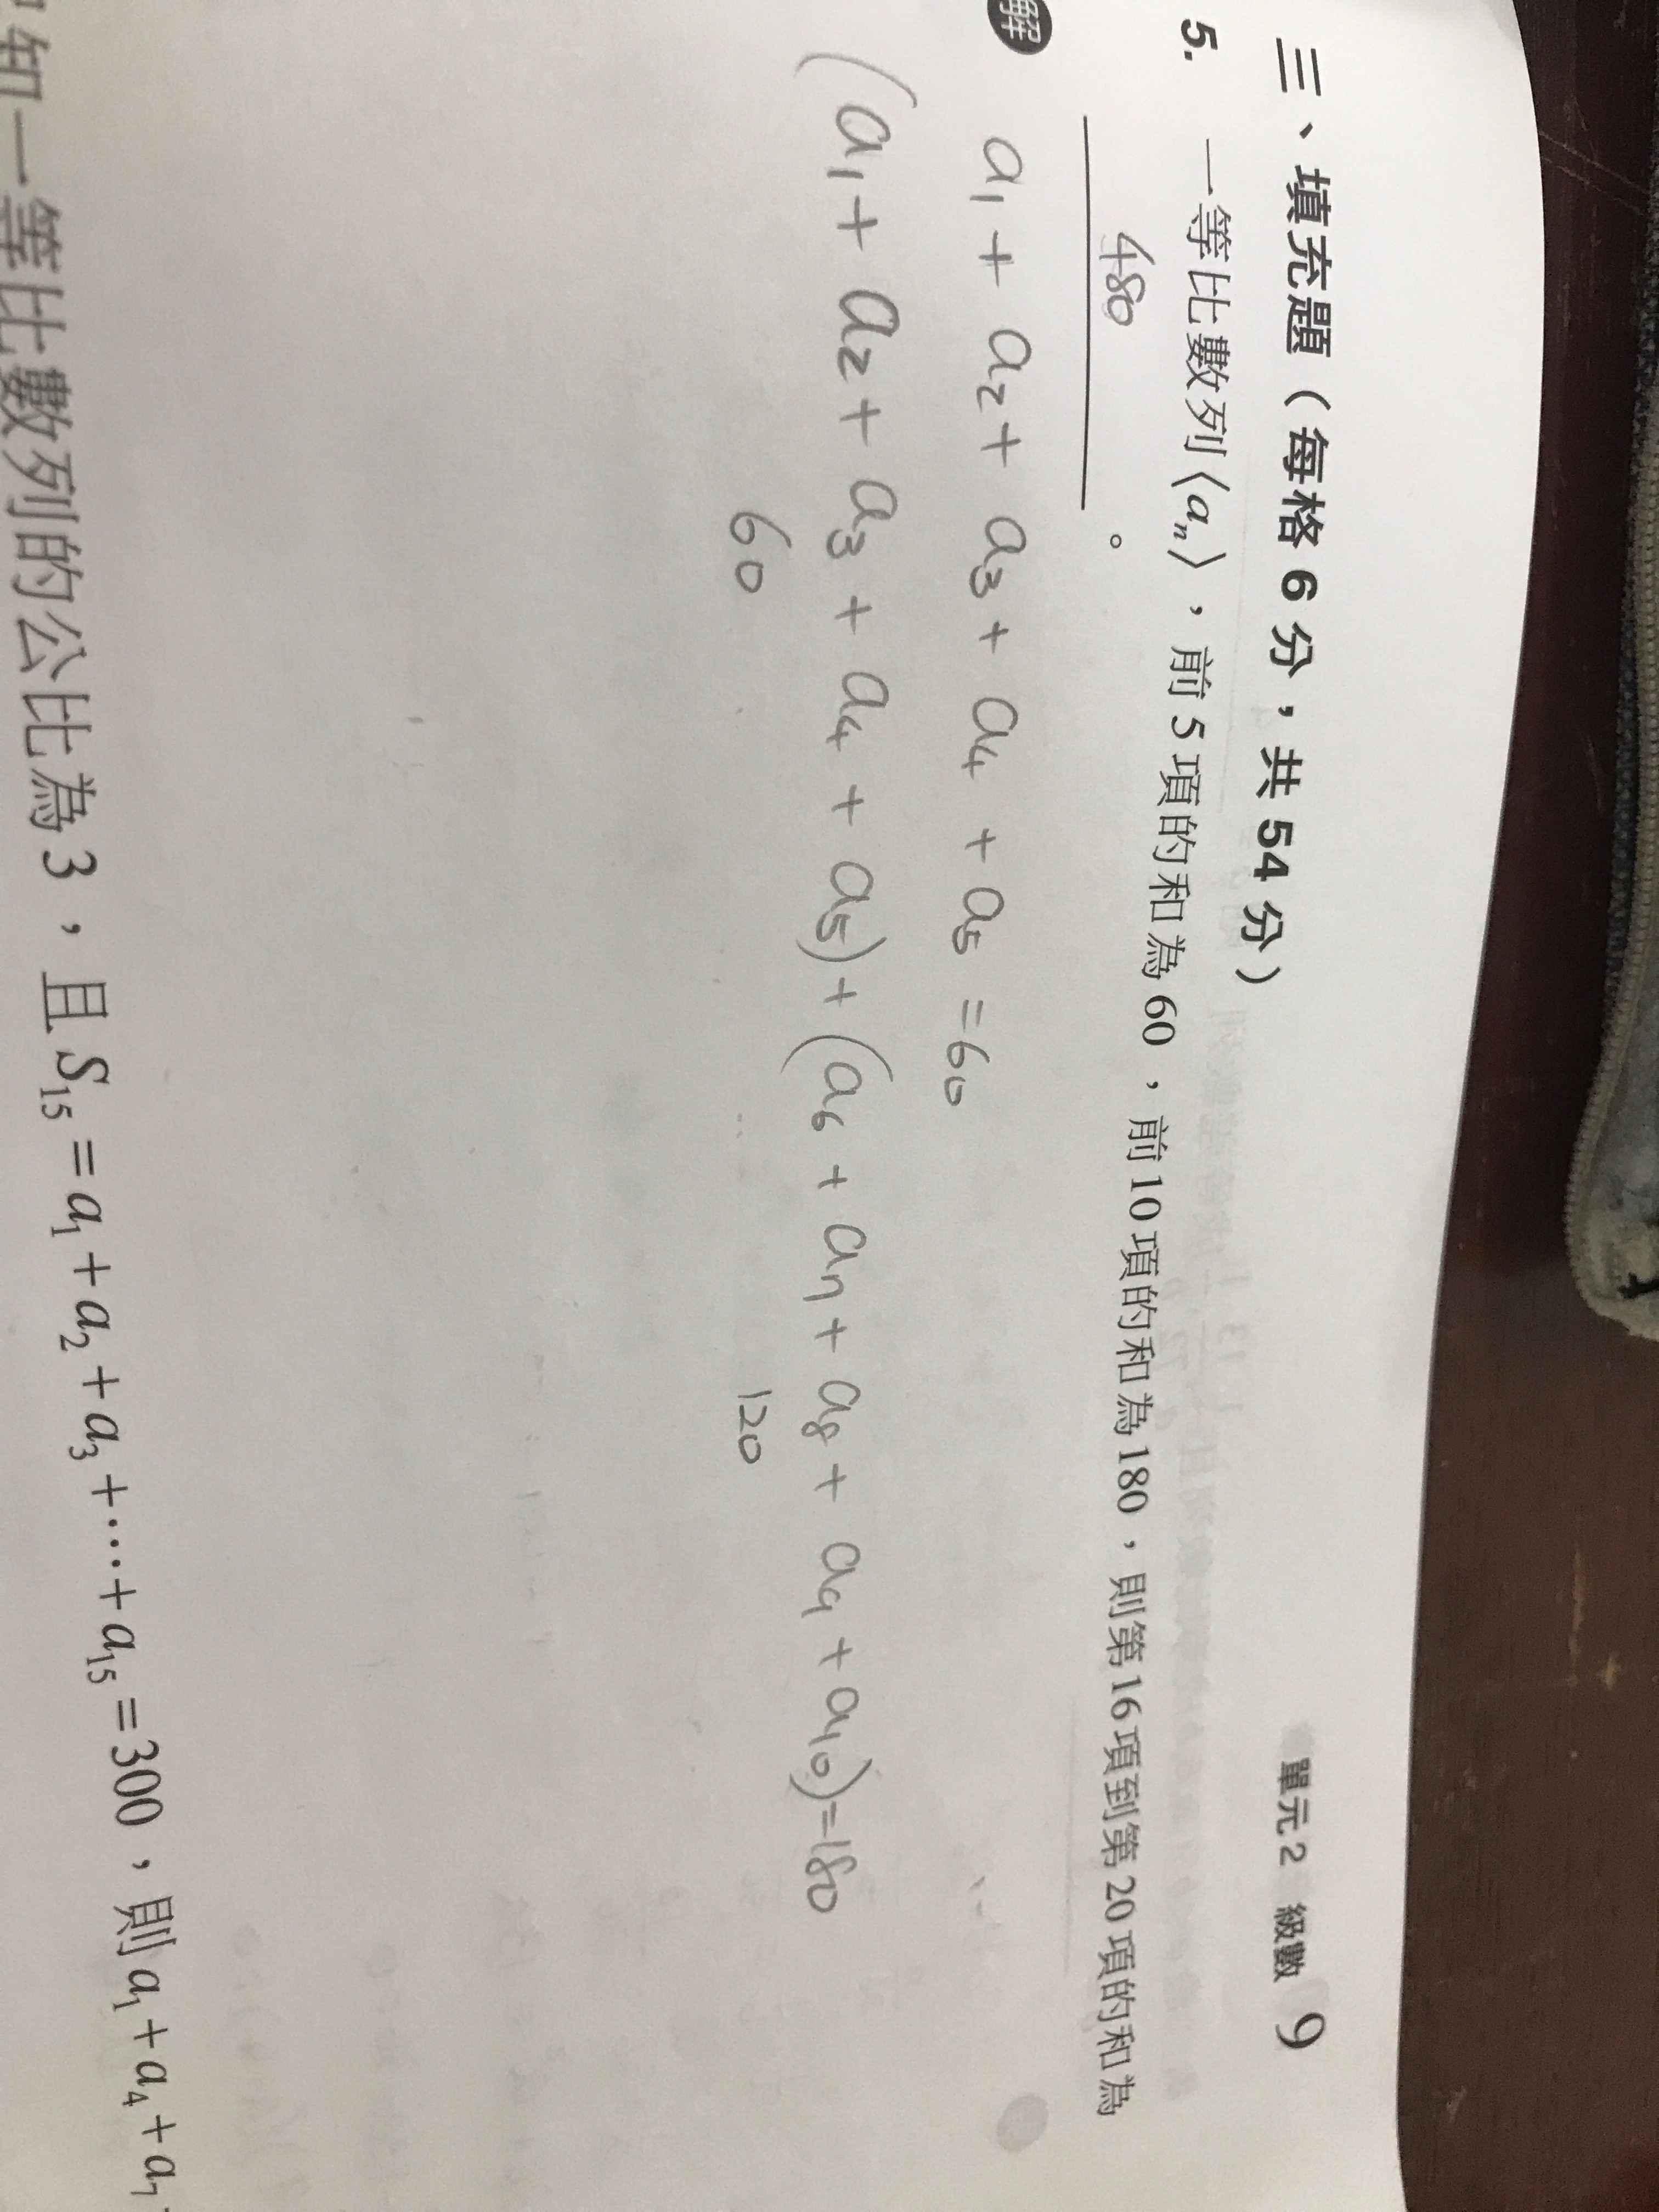 單元2 級數 9
三、填充題（每格 6 分，共 54 分）
5. 一等比數列⟨aₙ⟩，前 5 項的和為 60，前 10 項的和為 180，則第 16 項到第 20 項的和為
480 。
解
a₁ + a₂ + a₃ + a₄ + a₅ = 60
(a₁ + a₂ + a₃ + a₄ + a₅) + (a₆ + a₇ + a₈ + a₉ + a₁₀) = 180
60 120
知一等比數列的公比為 3，且 S₁₅ = a₁ + a₂ + a₃ + ⋯ + a₁₅ = 300，則 a₁ + a₄ + a₇